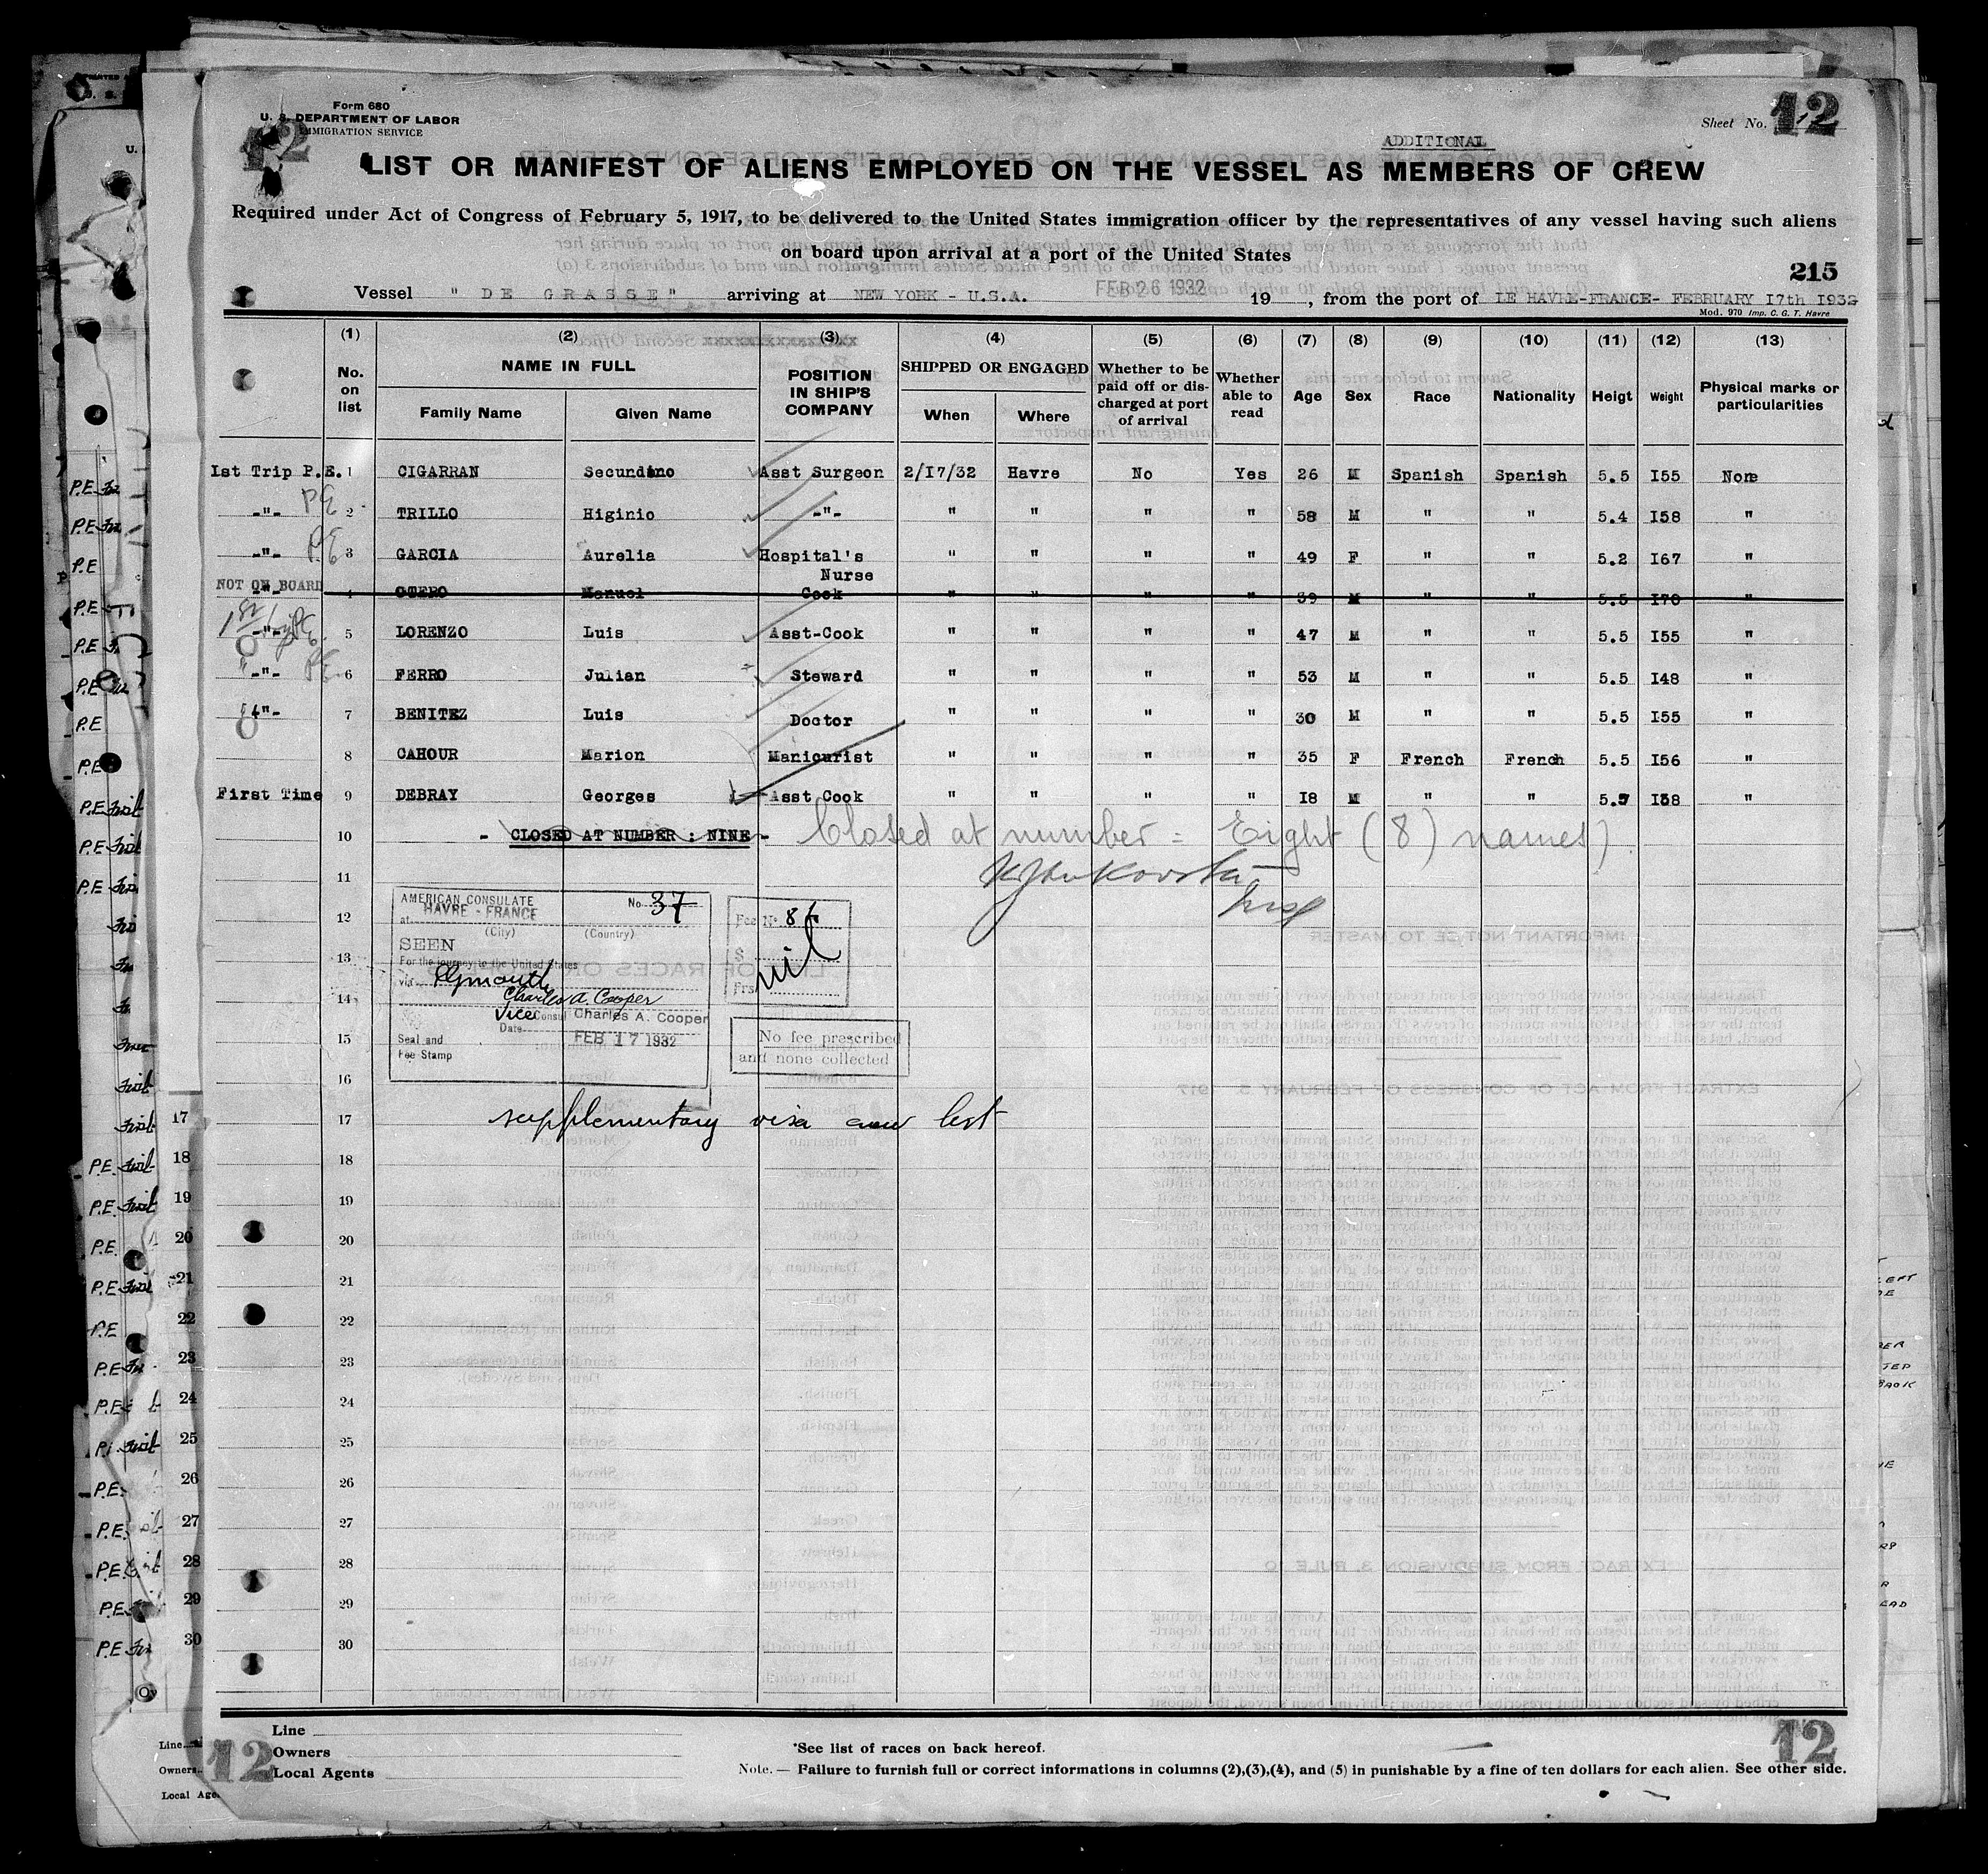 Form 680
U. S. DEPARTMENT OF LABOR
IMMIGRATION SERVICE
Sheet No. 12
ADDITIONAL
LIST OR MANIFEST OF ALIENS EMPLOYED ON THE VESSEL AS MEMBERS OF CREW
Required under Act of Congress of February 5, 1917, to be delivered to the United States immigration officer by the representatives of any vessel having such aliens
on board upon arrival at a port of the United States
215
Vessel " DE GRASSE" arriving at NEW YORK - U.S.A. FEB 26 1932 19 , from the port of LE HAVRE-FRANCE- FEBRUARY I7th I932
Mod. 970 Imp. C. G. T. Havre
(1) (2) (3) (4) (5) (6) (7) (8) (9) (10) (11) (12) (13)
No. on list NAME IN FULL Family Name Given Name POSITION IN SHIP'S COMPANY SHIPPED OR ENGAGED When Where Whether to be paid off or discharged at port of arrival Whether able to read Age Sex Race Nationality Heigt Weight Physical marks or particularities
Ist Trip P.E. 1 CIGARRAN Secundino Asst Surgeon 2/I7/32 Havre No Yes 26 M Spanish Spanish 5.5 I55 None
-"- PE 2 TRILLO Higinio -"- " " " " 58 M " " 5.4 I58 "
-"- PE 3 GARCIA Aurelia Hospital's Nurse " " " " 49 F " " 5.2 I67 "
NOT ON BOARD -"- 4 OTERO Manuel Cook " " " " 39 M " " 5.5 I70 "
-"- 5 LORENZO Luis Asst-Cook " " " " 47 M " " 5.5 I55 "
-"- PE 6 FERRO Julian Steward " " " " 53 M " " 5.5 I48 "
-"- 7 BENITEZ Luis Doctor " " " " 30 M " " 5.5 I55 "
8 CAHOUR Marion Manicurist " " " " 35 F French French 5.5 I56 "
First Time 9 DEBRAY Georges Asst Cook " " " " I8 M " " 5.7 I38 "
10 - CLOSED AT NUMBER : NINE - Closed at number = Eight (8) names)
11
12
13
14
15
16
17
18
19
20
21
22
23
24
25
26
27
28
29
30
AMERICAN CONSULATE
No. 37
at HAVRE - FRANCE
(City) (Country)
SEEN
For the journey to the United States
via Plymouth
Charles A. Cooper
Vice Consul Charles A. Cooper
Date FEB 17 1932
Seal and
Fee Stamp
Fee No.
$ nil
Frs
No fee prescribed
and none collected
supplementary visa crew list
Line
Owners
Local Agents
*See list of races on back hereof.
Note. — Failure to furnish full or correct informations in columns (2),(3),(4), and (5) in punishable by a fine of ten dollars for each alien. See other side.
12
12